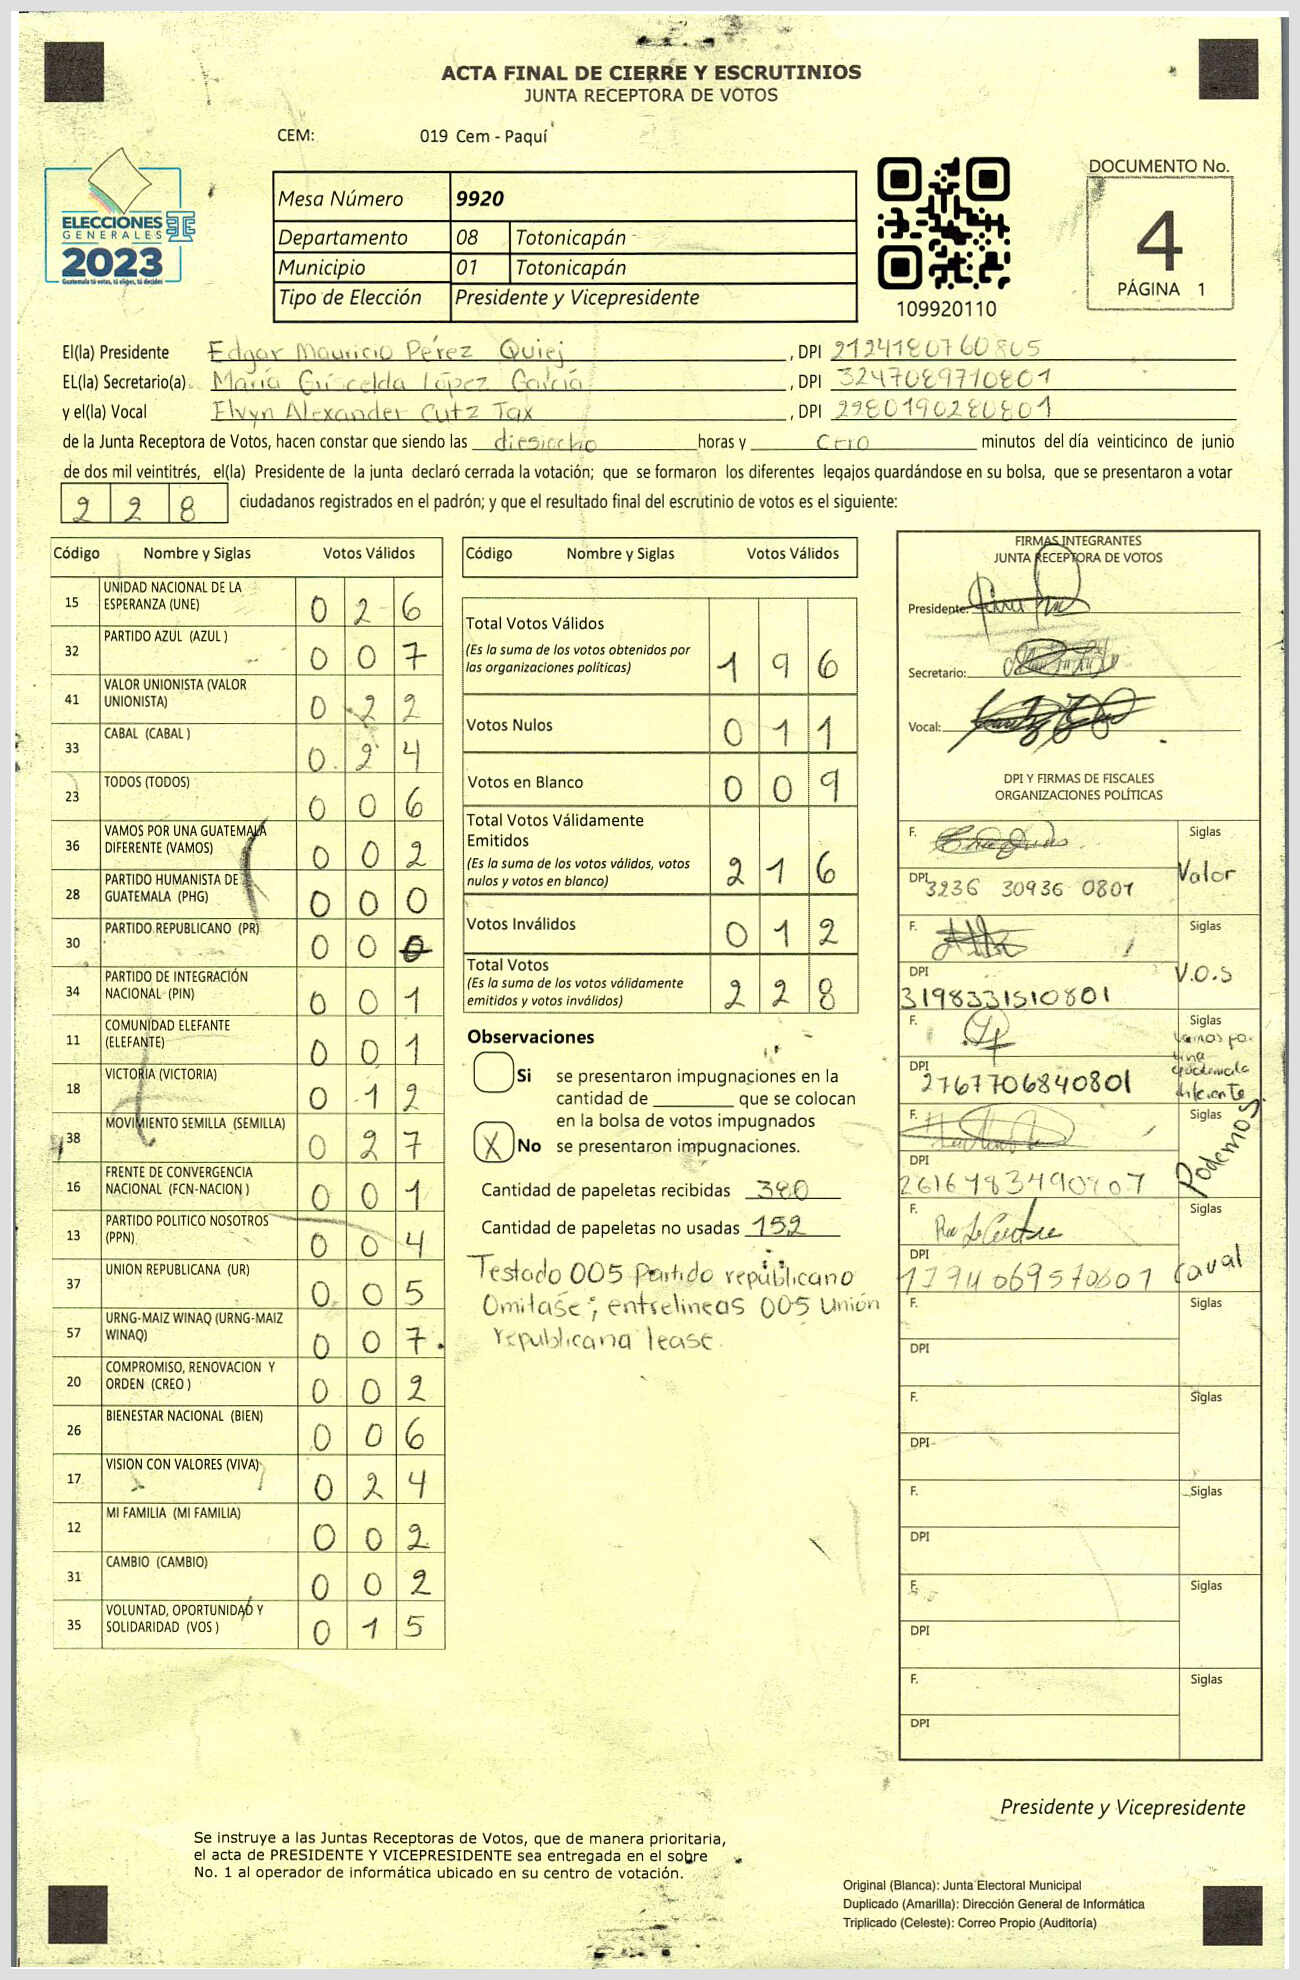 ACTA FINAL DE CIERRE Y ESCRUTINIOS
JUNTA RECEPTORA DE VOTOS
CEM: 019 Cem - Paquí
ELECCIONES
GENERALES
2023
Guatemala tú votas, tú eliges, tú decides
Mesa Número 9920
Departamento 08 Totonicapán
Municipio 01 Totonicapán
Tipo de Elección Presidente y Vicepresidente
109920110
DOCUMENTO No.
4
PÁGINA 1
El(la) Presidente Edgar Mauricio Pérez Quiej, DPI 2124180760805
EL(la) Secretario(a) María Griscelda López García, DPI 3247089710801
y el(la) Vocal Elvyn Alexander Cutz Tax, DPI 2280190280801
de la Junta Receptora de Votos, hacen constar que siendo las diesiocho horas y cero minutos del día veinticinco de junio
de dos mil veintitrés, el(la) Presidente de la junta declaró cerrada la votación; que se formaron los diferentes legajos guardándose en su bolsa, que se presentaron a votar
228 ciudadanos registrados en el padrón; y que el resultado final del escrutinio de votos es el siguiente:
Código Nombre y Siglas Votos Válidos
15 UNIDAD NACIONAL DE LA ESPERANZA (UNE) 026
32 PARTIDO AZUL (AZUL ) 007
41 VALOR UNIONISTA (VALOR UNIONISTA) 022
33 CABAL (CABAL ) 024
23 TODOS (TODOS) 006
36 VAMOS POR UNA GUATEMALA DIFERENTE (VAMOS) 002
28 PARTIDO HUMANISTA DE GUATEMALA (PHG) 000
30 PARTIDO REPUBLICANO (PR) 000
34 PARTIDO DE INTEGRACIÓN NACIONAL (PIN) 001
11 COMUNIDAD ELEFANTE (ELEFANTE) 001
18 VICTORIA (VICTORIA) 012
38 MOVIMIENTO SEMILLA (SEMILLA) 027
16 FRENTE DE CONVERGENCIA NACIONAL (FCN-NACION ) 001
13 PARTIDO POLITICO NOSOTROS (PPN) 004
37 UNION REPUBLICANA (UR) 005
57 URNG-MAIZ WINAQ (URNG-MAIZ WINAQ) 007.
20 COMPROMISO, RENOVACION Y ORDEN (CREO ) 002
26 BIENESTAR NACIONAL (BIEN) 006
17 VISION CON VALORES (VIVA) 024
12 MI FAMILIA (MI FAMILIA) 002
31 CAMBIO (CAMBIO) 002
35 VOLUNTAD, OPORTUNIDAD Y SOLIDARIDAD (VOS ) 015
Código Nombre y Siglas Votos Válidos
Total Votos Válidos 196
(Es la suma de los votos obtenidos por
las organizaciones políticas)
Votos Nulos 011
Votos en Blanco 009
Total Votos Válidamente
Emitidos 216
(Es la suma de los votos válidos, votos
nulos y votos en blanco)
Votos Inválidos 012
Total Votos 228
(Es la suma de los votos válidamente
emitidos y votos inválidos)
Observaciones
Si se presentaron impugnaciones en la
cantidad de ________ que se colocan
en la bolsa de votos impugnados
X No se presentaron impugnaciones.
Cantidad de papeletas recibidas 380
Cantidad de papeletas no usadas 152
Testado 005 Partido republicano
Omitase; entrelineas 005 Unión
republicana lease.
FIRMAS INTEGRANTES
JUNTA RECEPTORA DE VOTOS
Presidente:
Secretario:
Vocal:
DPI Y FIRMAS DE FISCALES
ORGANIZACIONES POLÍTICAS
F. Siglas
DPI 3236 30936 0801 Valor
F. Siglas
DPI 3198331510801 V.O.S
F. Siglas
DPI 2767706840801 Vamos por una guatemala diferente
F. Siglas
DPI Podemos
F. Siglas
DPI Caval
F. Siglas
DPI
F. Siglas
DPI
F. Siglas
DPI
F. Siglas
DPI
F. Siglas
DPI
Presidente y Vicepresidente
Se instruye a las Juntas Receptoras de Votos, que de manera prioritaria,
el acta de PRESIDENTE Y VICEPRESIDENTE sea entregada en el sobre
No. 1 al operador de informática ubicado en su centro de votación.
Original (Blanca): Junta Electoral Municipal
Duplicado (Amarilla): Dirección General de Informática
Triplicado (Celeste): Correo Propio (Auditoría)